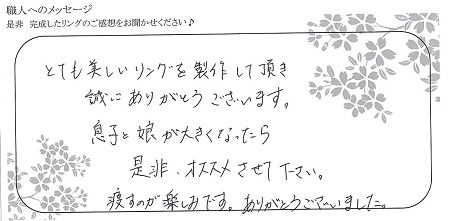 職人へのメッセージ
是非 完成したリングのご感想をお聞かせください♪
とても美しいリングを製作して頂き
誠にありがとうございます。
息子と娘が大きくなったら
是非、オススメさせて下さい。
渡すのが楽しみです。ありがとうございました。